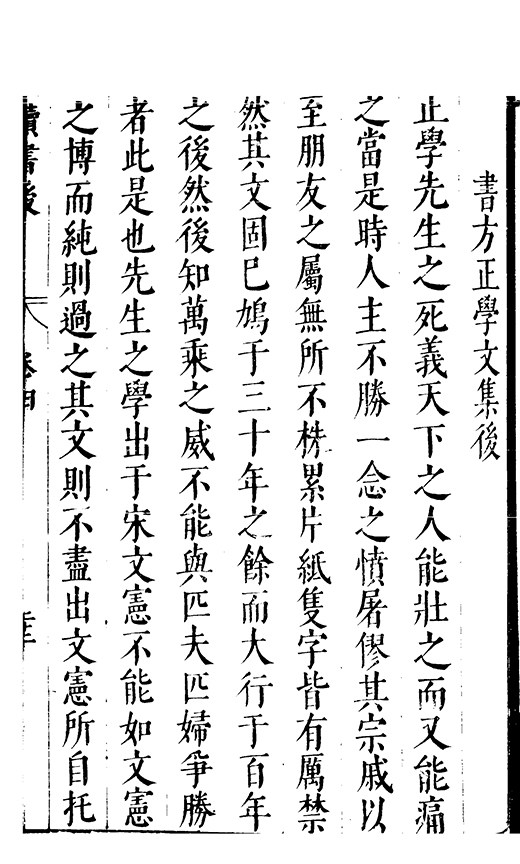 書方正學文集後
正學先生之死義天下之人能壯之而又能痛
之當是時人主不勝一念之憤屠僇其宗戚以
至朋友之屬無所不株累片紙隻字皆有厲禁
然其文固已鳩于三十年之餘而大行于百年
之後然後知萬乘之威不能與匹夫匹婦爭勝
者此是也先生之學出于宋文憲不能如文憲
之博而純則過之其文則不盡出文憲所自托
讀書後 卷四